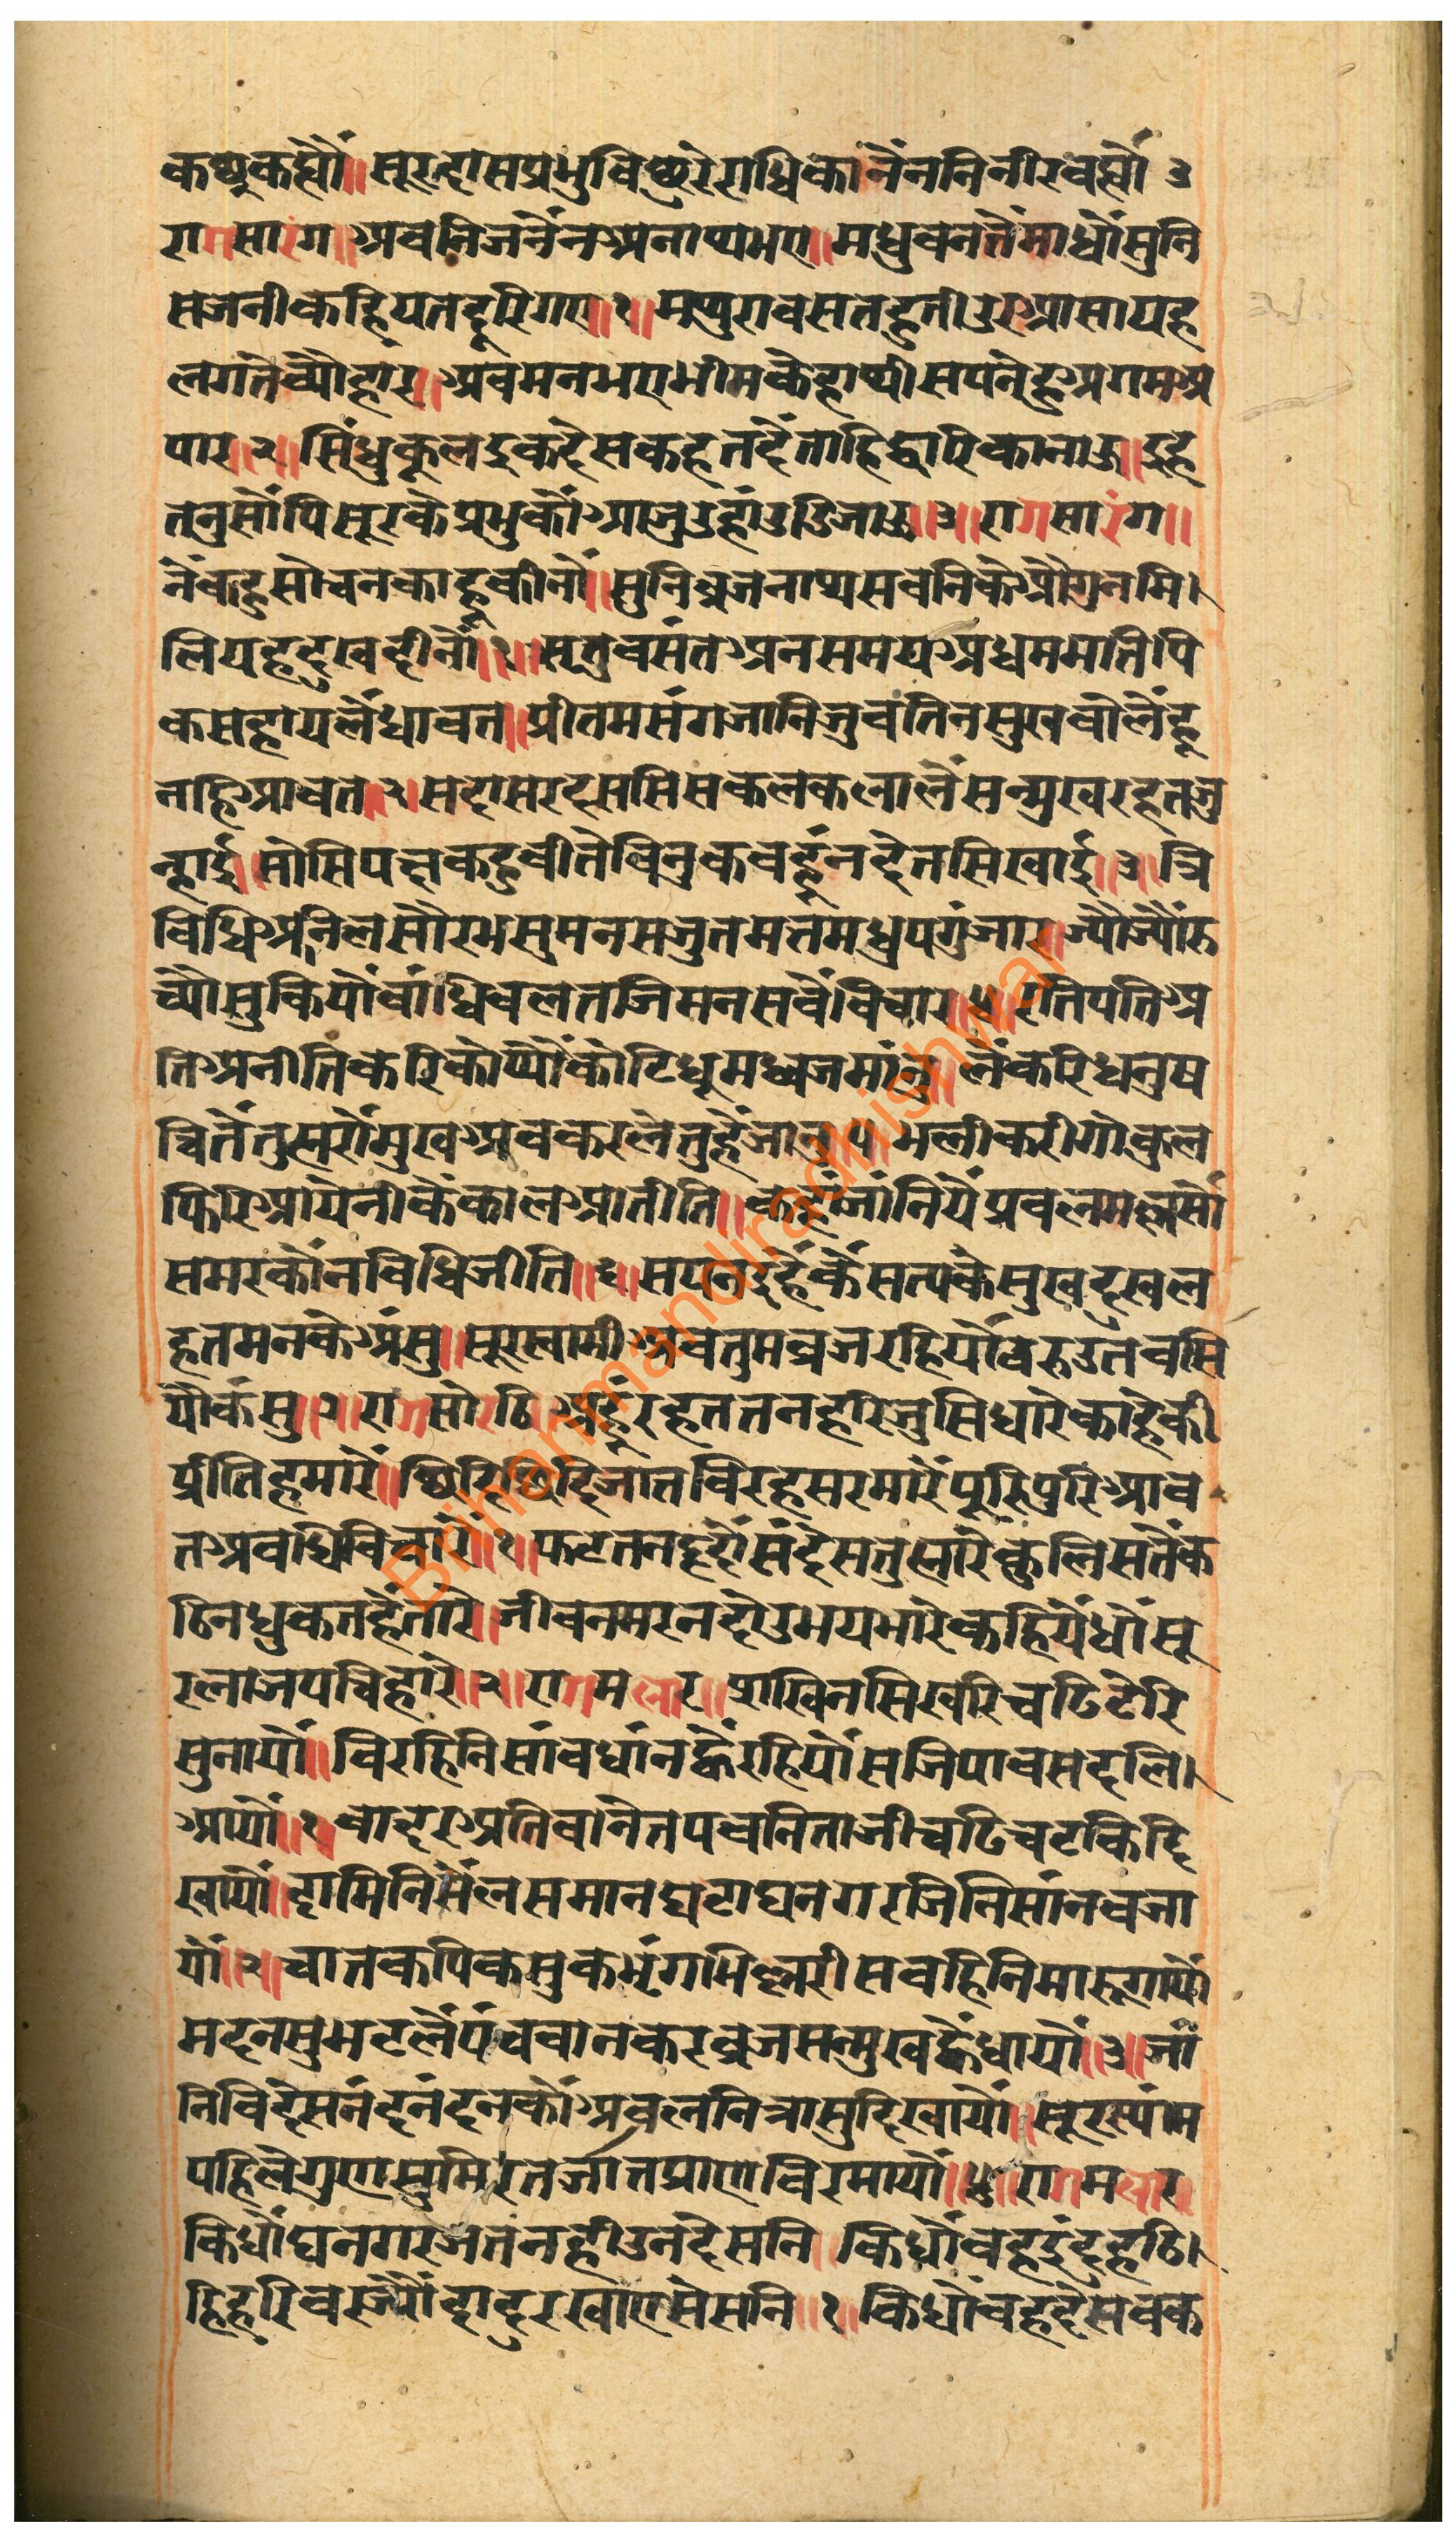 कछूकह्यौं॥ सूरदासप्रभुविछुरेराधिकानैंननिनीरवह्यौं ३
रागसारंग॥ अवनिजनैंनअनाथभए॥मधुवनतैंमाधौंसुनि
सजनीकहियतदूरिगए॥१॥मथुरावसतहुतीउरआसायह
लगतेव्यौहार॥अवमनभएभीमकेहाथीसपनेहूअगमअ
पार॥२॥सिंधुकूलइकदेसकहतहैंताहिद्वारिकानाऊ॥इह
तनुसौंपिसूरकेप्रभुकौंआजुउहांउडिजाऊ॥३॥रागसारंग॥
नैंकहुसोचनकाहूकीनौं॥सुनिव्रजनाथसवनिकेऔगुनमि।
लियहदुखदीनौं॥१॥सूतुवसंतअनसमयअधममतिपि
कसहायलैंधावत॥प्रीतमसंगजानिजुवतिनसुखबोलैंहू
नहिआवत॥२॥सदासरदससिसकलकलालैंसन्मुखरहतजु
न्हाई॥सोसिपछकहुवीतेविनुकवहूंनदेतसिखाई॥३॥त्रि
विधिअनिलसौरभसुमनसजुतमत्तमधुपगुंजार॥ज्यौंज्यौंरु
च्यौसुकियौवांधिवलतजिमनसवैंविचार॥४॥रतिपतिअ
तिअनीतिकरिकोप्यौंकोटिधूमध्वजमांनु॥लैंकरिधनुष
चितैंतुह्मरौमुखअवकरलेतुहैंजानु॥५॥भलीकरीगोकुल
फिरिआयेनीकेंकालआतीति॥कहूंजांनियेंप्रवलमल्लसौं
समरकौनविधिजीति॥६॥सपनइहेंकेंसत्पकेंसुखदुखल
हतमनकेअंसु॥सूरस्वामीअवतुमव्रजरहियौवरुउतवसि
यौकंसु॥७॥रागसोरठि॥अहूंरहततनहरिजुसिधारेकाहेकी
प्रीतिहमारें॥छिदिछिदिजातविरहसरमारेंपूरिपूरिआव
तअवधिविचारें॥१॥फटतनहृदौसंदेसतुह्मारेकुलिसतेंक
ठिनधुकतहैंतारे॥जीवनमरनदोउभयभारेकहियेंधौंसू
रलाजपचिहारे॥२॥रागमलार॥प्राखिनसिखरिचढिटेरि
सुनायौं॥विरहिनिसांवधांनह्वैंरहियौंसजिपावसदलि।
आयौं॥१॥वादरअतिवानैतपवनिताजीचढिचटकिदि
खायौं॥दामिनिसैंलसमानघटाघनगरजिनिसांनवजा
यौं॥२॥चातकपिकसुकभृंगीझिल्लरीसवहिनिमारूगायौं
मदनसुभटलैंपंचवानकरव्रजसन्मुखह्वैंधायौं॥३॥जां
निविदेसनंदनंदनकौंअवलनित्राासुदिखायौं॥सूरस्यांम
पहिलेगुणसुमिरतजांतप्राणविरमायौं॥४॥रागमलार
किधौंघनगरजतनहीउनदेसनि॥किधौंवहइंद्रहठि।
हिहरिवरज्यौंदादुरखाएसेसनि॥१॥किधौंवहदेसवक